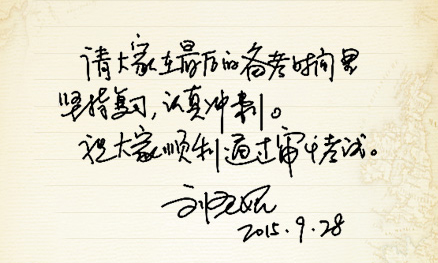 请大家在最后的备考时间里
坚持复习，认真冲刺。
祝大家顺利通过审计考试。
2015.9.28